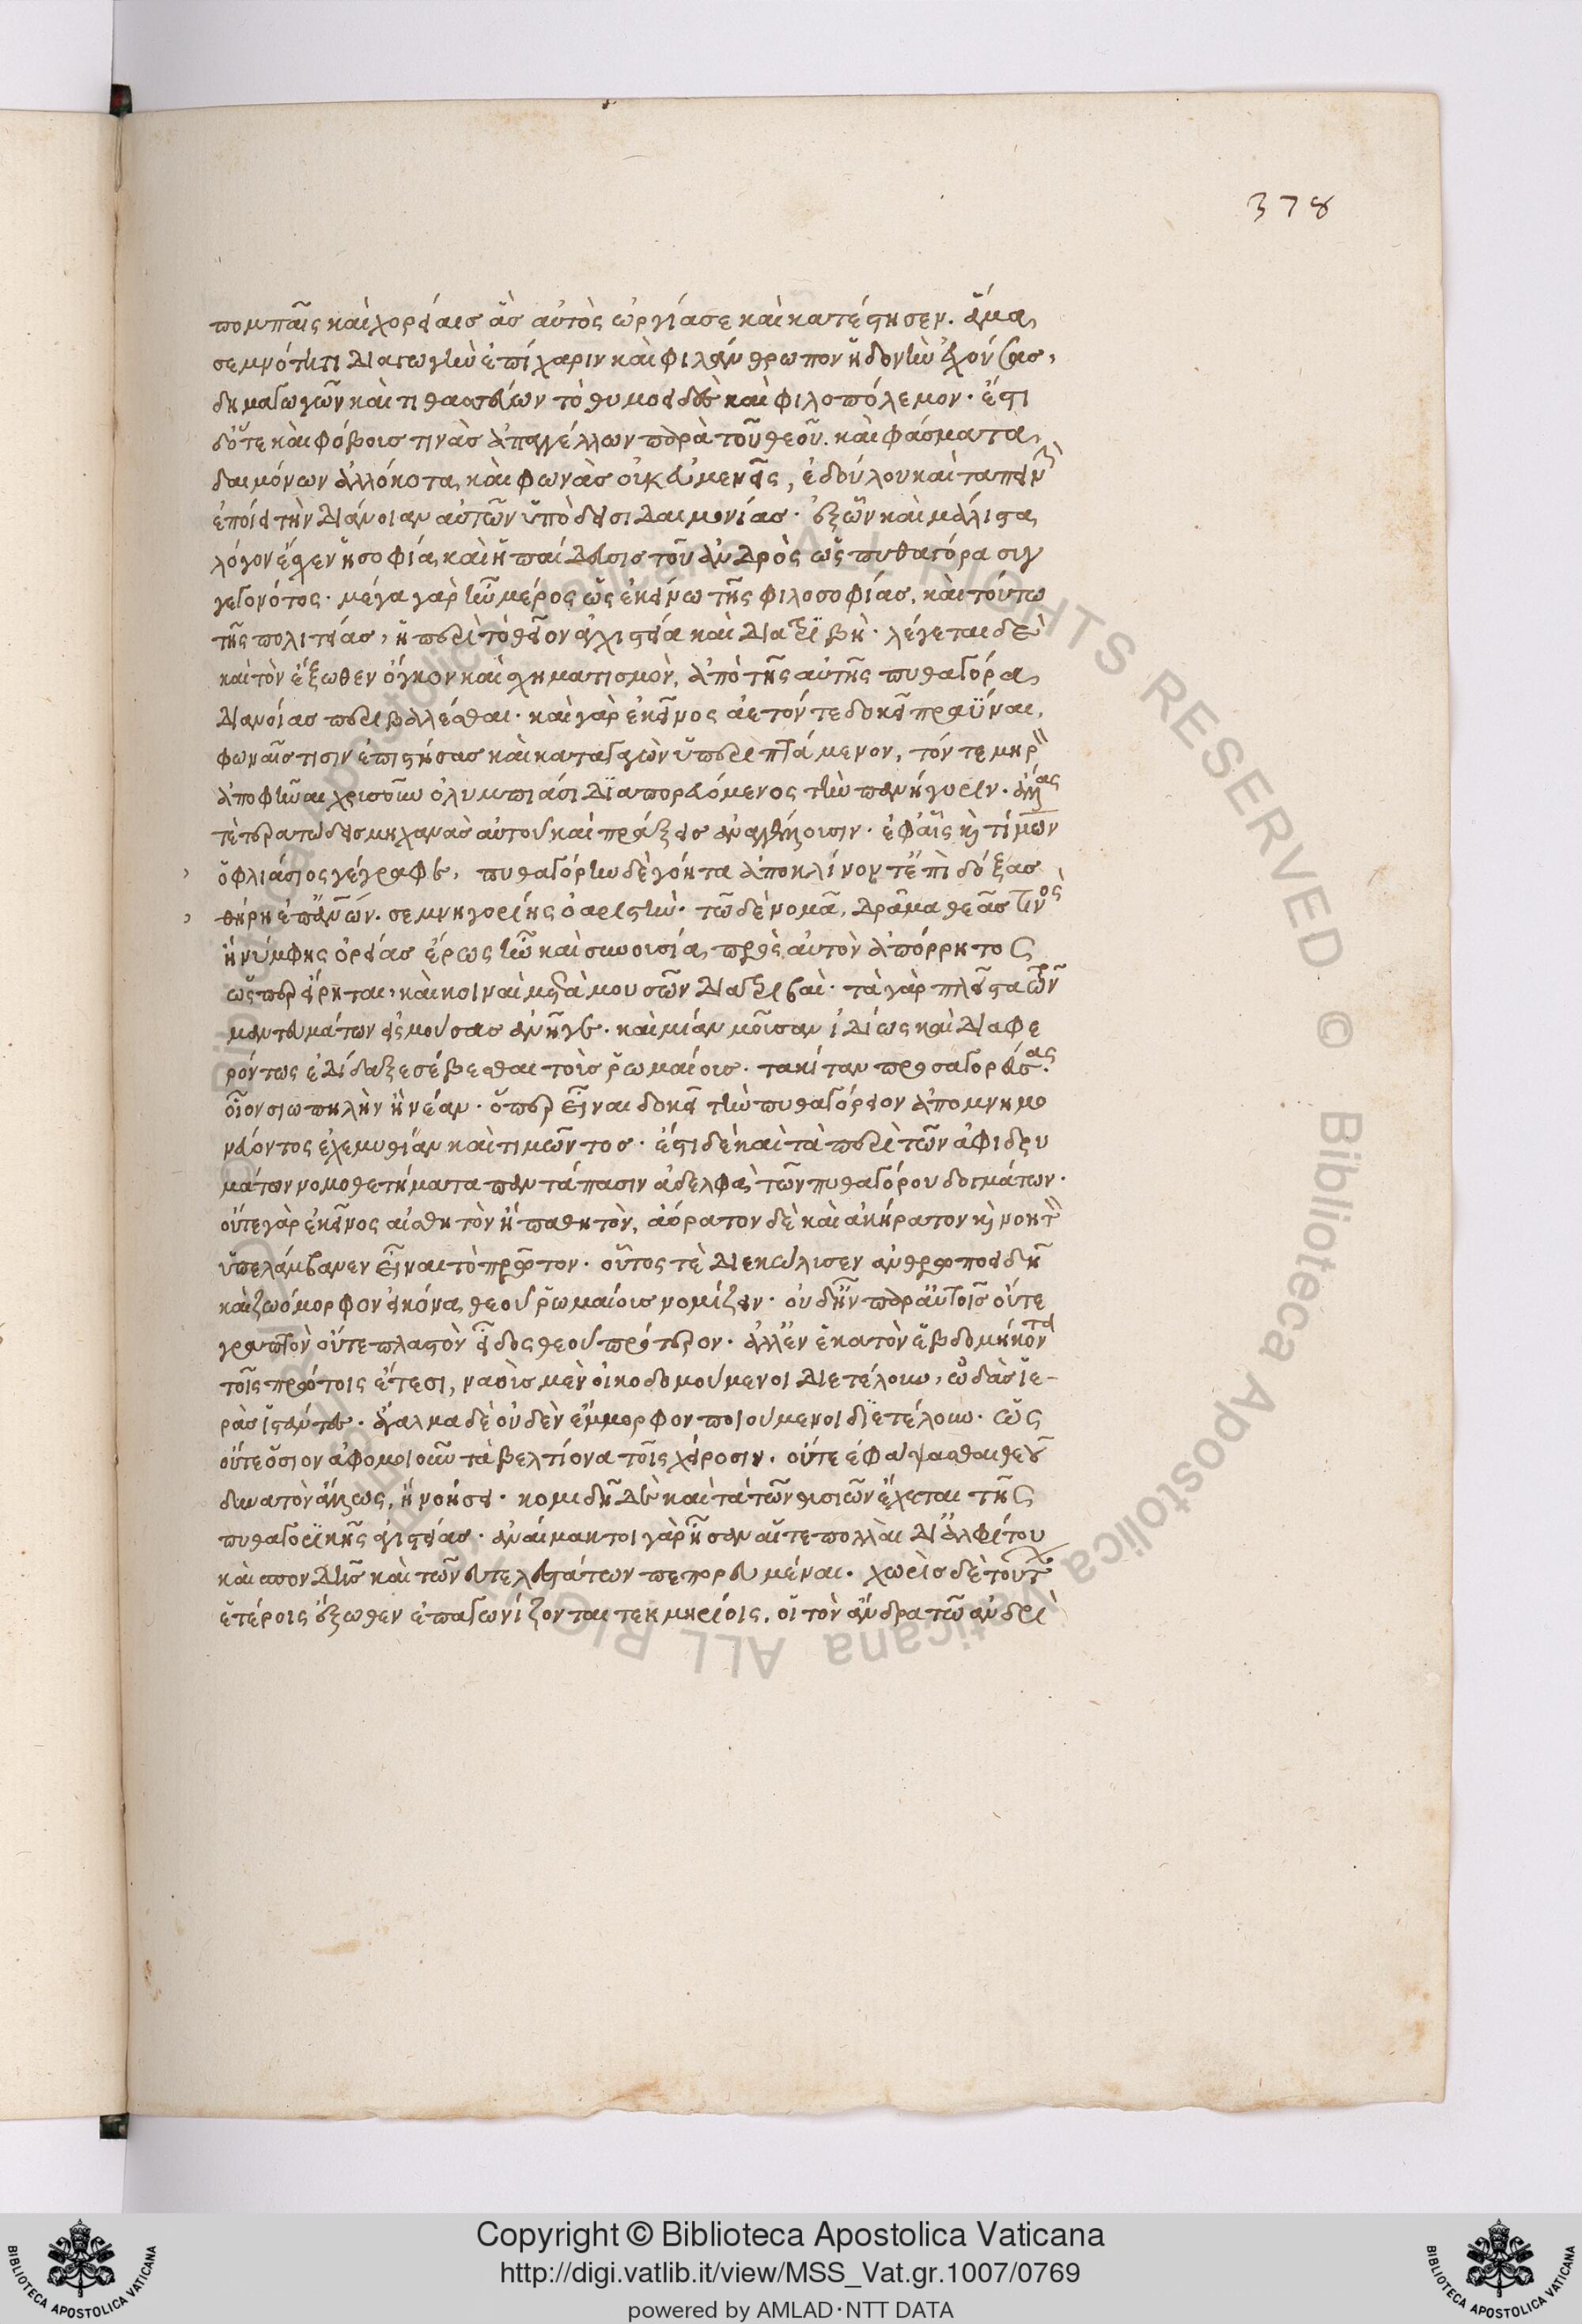 378
πομπαῖς καὶ χορείαις ἃς αὐτὸς ὠργίασε καὶ κατέστησεν. ἅμα
σεμνότητι διαγωγὴν ἐπίχαριν καὶ φιλάνθρωπον ἡδονὴν ἐχούσας,
δημαγωγῶν καὶ τιθασσεύων τὸ θυμοειδὲς καὶ φιλοπόλεμον. ἔστι
δ' ὅτε καὶ φόβοις τινὰς ἀπαγγέλλων παρὰ τοῦ θεοῦ. καὶ φάσματα
δαιμόνων ἀλλόκοτα καὶ φωνὰς οὐκ εὐμενεῖς, ἐδούλου καὶ ταπεινὴν
ἐποίει τὴν διάνοιαν αὐτῶν ὑπὸ δεισιδαιμονίας. ἐξ ὧν καὶ μάλιστα
λόγον ἔσχεν ἡ σοφία καὶ ἡ παίδευσις τοῦ ἀνδρὸς ὡς πυθαγόρα συγ
γεγονότος. μέγα γὰρ ἦν μέρος ὡς ἐκείνω τῆς φιλοσοφίας, καὶ τούτω
τῆς πολιτείας, ἡ περὶ τὸ θεῖον ἀγχιστεία καὶ διατριβή. λέγεται δὲ
καὶ τὸν ἔξωθεν ὄγκον καὶ σχηματισμὸν, ἀπὸ τῆς αὐτῆς πυθαγόρα
διανοίας περιβαλλέσθαι. καὶ γὰρ ἐκεῖνος ἀετόν τε δοκεῖ πραῢναι,
φωναῖς τισιν ἐπιστήσας καὶ καταγαγὼν ὑπεριπτάμενον, τόν τε μηρὸν
ἀποφῆναι χρυσοῦν ὀλυμπιάσι διαπορευόμενος τὴν πανήγυριν. ἄλλας
τὲ τερατώδεις μηχανὰς αὐτοῦ καὶ πράξεις ἀναγγέλλουσιν. ἐφ' αἷς καὶ τίμων
ὁ φλιάσιος γέγραφε, πυθαγόρην δὲ γόητα ἀποκλίνοντ' ἐπὶ δόξας
θήρη ἐπ' ἀνθρώπων. σεμνηγορίης ὀαριστὴν. τῶ δὲ νομᾶ, δρᾶμα θεᾶς τινὸς
ἢ νύμφης ὀρείας ἔρως ἦν καὶ συνουσία πρὸς αὐτὸν ἀπόρρητος
ὥσπερ εἴρηται, καὶ κοιναὶ μετὰ μουσῶν διατριβαὶ. τὰ γὰρ πλεῖστα τῶν
μαντευμάτων εἰς μούσας ἀνῆγε. καὶ μίαν μοῦσαν ἰδίως καὶ διαφε
ρόντως ἐδίδαξε σέβεσθαι τοὺς ῥωμαίους. τακίταν προσαγορεύσας.
οἷον σιωπηλὴν ἢ νέαν. ὅπερ εἶναι δοκεῖ τὴν πυθαγόρειον ἀπομνημο
νεύοντος ἐχεμυθίαν καὶ τιμῶντος. ἔστι δὲ καὶ τὰ περὶ τῶν ἀφιδρυ
μάτων νομοθετήματα παντάπασιν ἀδελφὰ τῶν πυθαγόρου δογμάτων.
οὔτε γὰρ ἐκεῖνος αἰσθητὸν ἢ παθητὸν, ἀόρατον δὲ καὶ ἀκήρατον καὶ νοητὸν
ὑπελάμβανεν εἶναι τὸ πρῶτον. οὗτος τὲ διεκώλυσεν ἀνθρωποειδῆ
καὶ ζωόμορφον εἰκόνα θεοῦ ῥωμαίοις νομίζειν. οὐδ' ἦν παρ' αὐτοῖς οὔτε
γραπτὸν οὔτε πλαστὸν εἶδος θεοῦ πρότερον. ἀλλ' ἐν ἑκατὸν ἑβδομήκοντα
τοῖς πρώτοις ἔτεσι, ναοὺς μὲν οἰκοδομούμενοι διετέλουν, ὠδὰς ἱε-
ρὰς ἱστῶντες. ἄγαλμα δὲ οὐδὲν ἔμμορφον ποιούμενοι διετέλουν. ὡς
οὔτε ὅσιον ἀφομοιοῦν τὰ βελτίονα τοῖς χείροσιν. οὔτε ἐφάψασθαι θεοῦ
δυνατὸν ἄλλως, ἢ νοήσει. κομιδῆ δὲ καὶ τὰ τῶν θυσιῶν ἔχεται τῆς
πυθαγορικῆς ἁγιστείας. ἀναίμακτοι γὰρ ἦσαν αἵ τε πολλαὶ δι' ἀλφίτου
καὶ σπονδῆς καὶ τῶν εὐτελεστάτων πεπορευμέναι. χωρὶς δὲ τούτων
ἑτέροις ἔξωθεν ἐπαγωνίζονται τεκμηρίοις, οἱ τὸν ἄνδρα τῶ ἀνδρὶ
Copyright © Biblioteca Apostolica Vaticana
http://digi.vatlib.it/view/MSS_Vat.gr.1007/0769
powered by AMLAD·NTT DATA